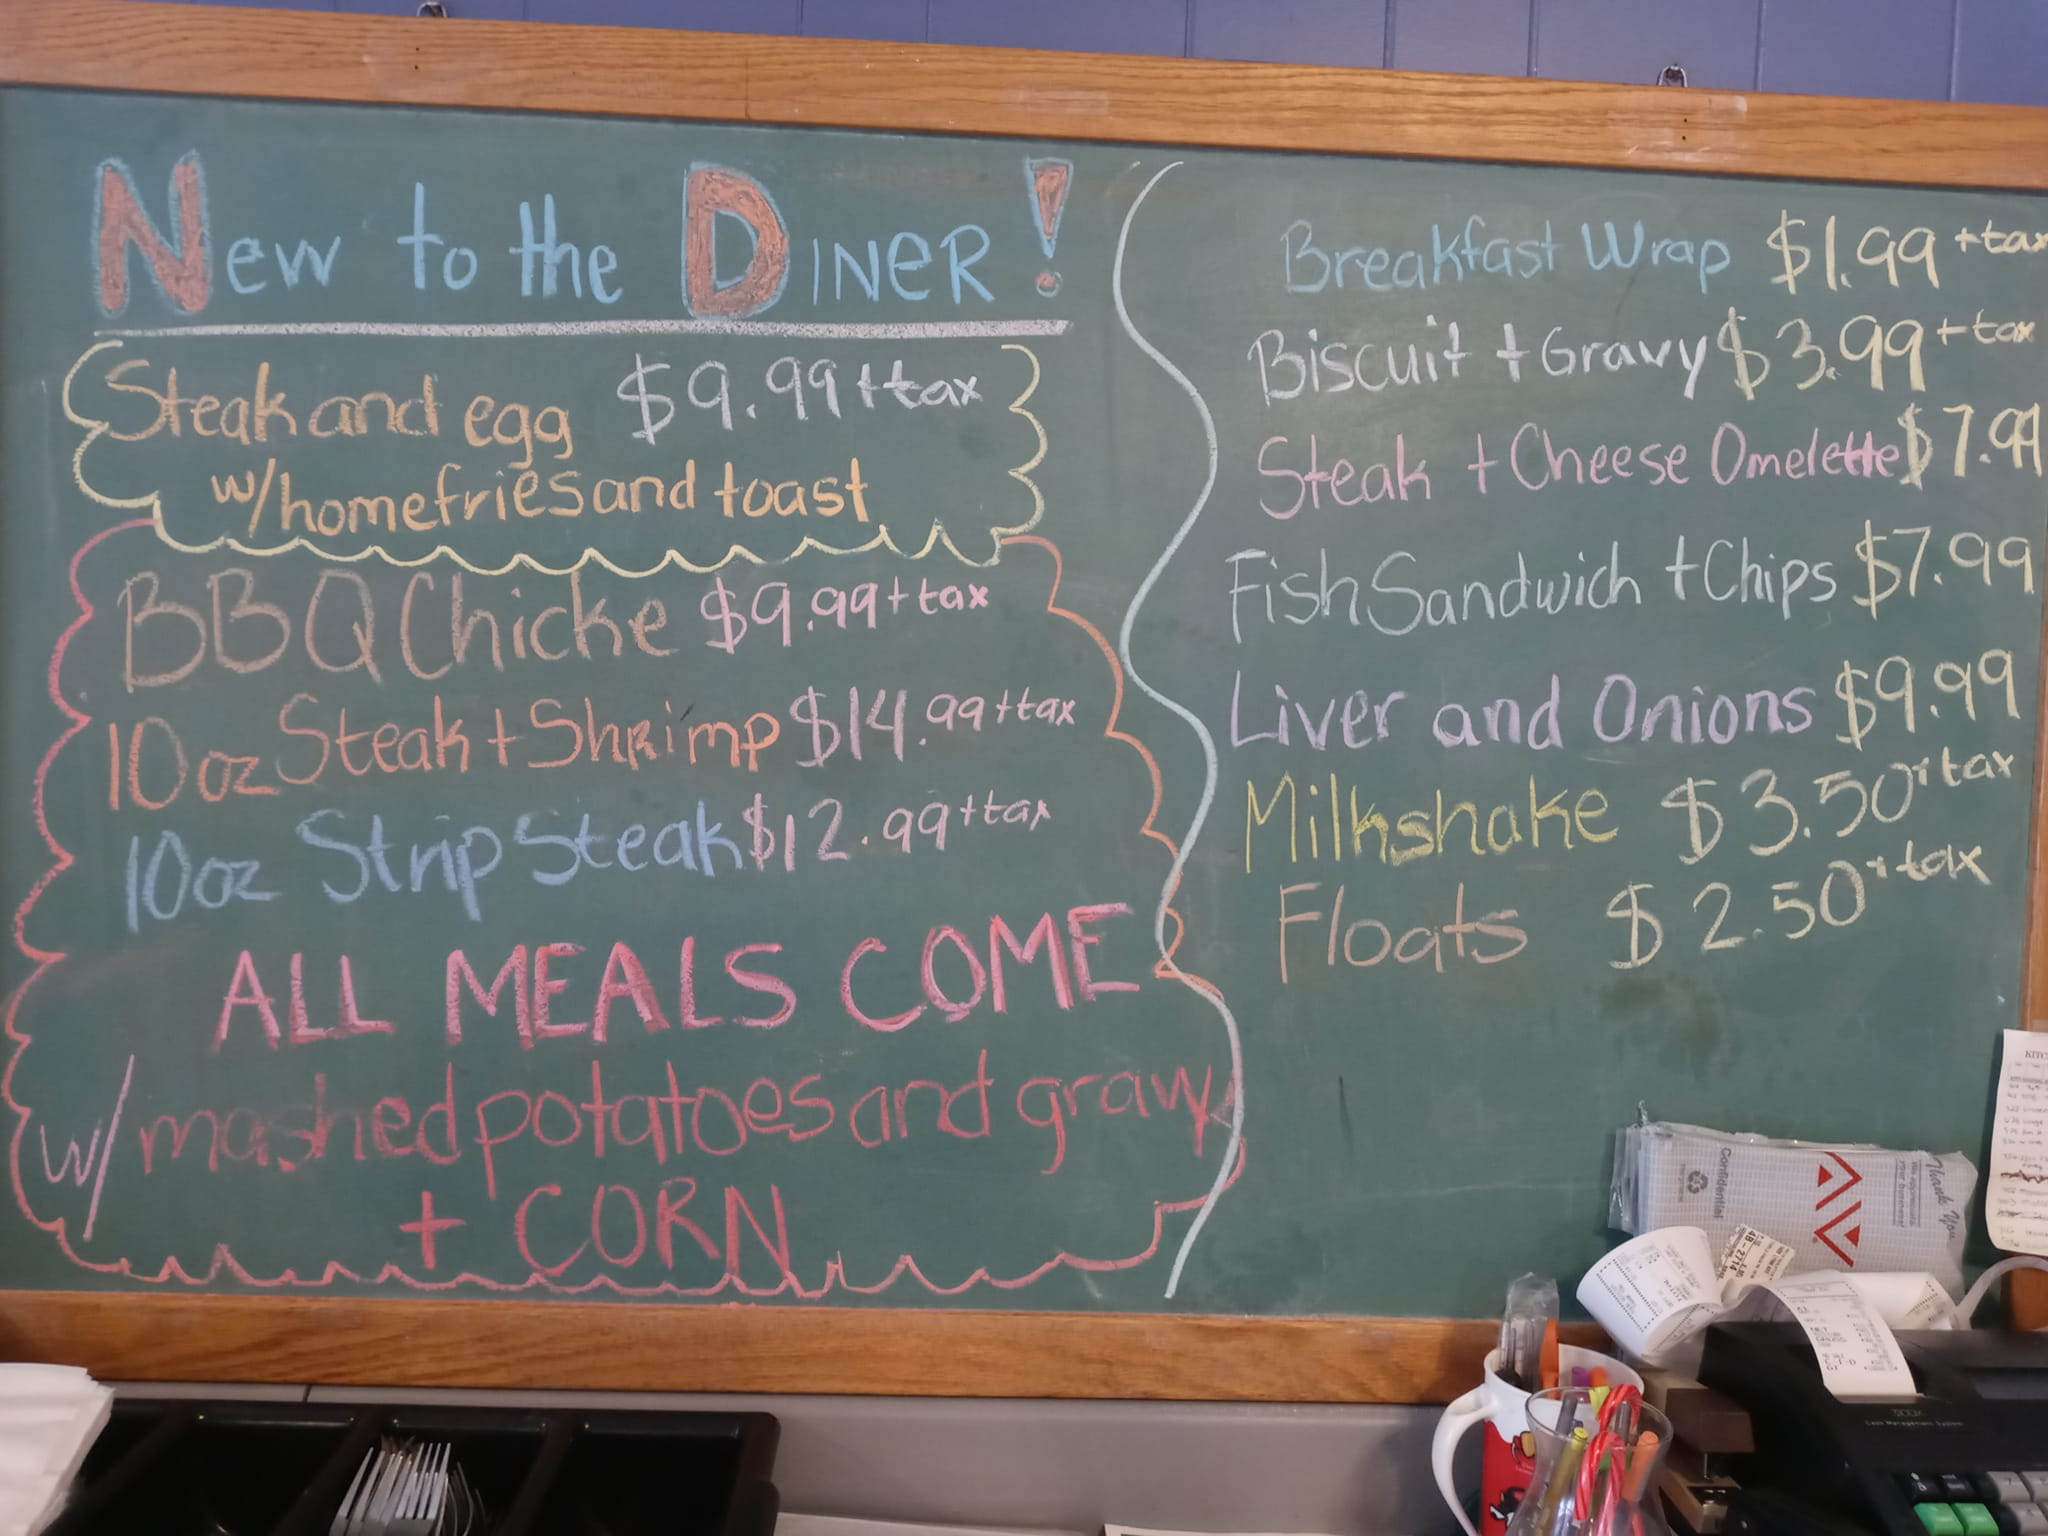 New to the Diner!
Steak and egg $9.99 + tax
w/homefries and toast
BBQ Chicke $9.99 + tax
10 oz Steak + Shrimp $14.99 + tax
10 oz Strip Steak $12.99 + tax
ALL MEALS COME
w/ mashed potatoes and gravy
+ CORN
Breakfast Wrap $1.99 + tax
Biscuit + Gravy $3.99 + tax
Steak + Cheese Omelette $7.99
Fish Sandwich + Chips $7.99
Liver and Onions $9.99
Milkshake $3.50 + tax
Floats $2.50 + tax
Confidential
Thank You